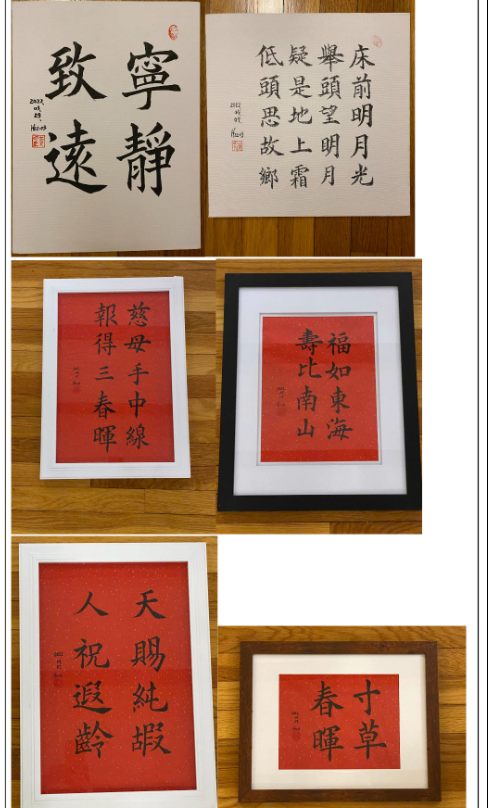 寧靜
致遠
2022
床前明月光
舉頭望明月
疑是地上霜
低頭思故鄉
2022
慈母手中線
報得三春暉
福如東海
壽比南山
天賜純嘏
人祝遐齡
寸草
春暉